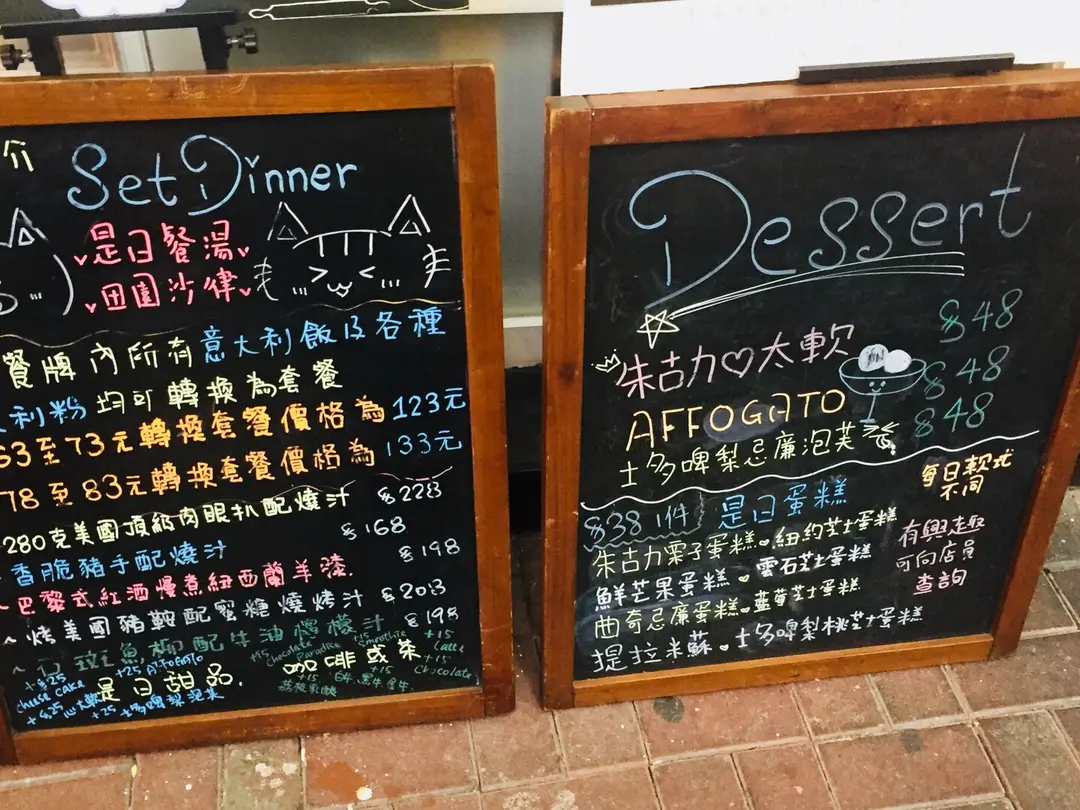 介
Set Dinner
是日餐湯
田園沙律
餐牌內所有意大利飯及各種
利粉 均可轉換為套餐
63至73元轉換套餐價格為123元
78至83元轉換套餐價格為133元
280克美國頂級肉眼扒配燒汁 $228
香脆豬手配燒汁 $168
巴黎式紅酒慢煮紐西蘭羊漆. $198
~烤美國豬鞍配蜜糖燒烤汁 $208
~石斑魚柳配牛油檸檬汁 $198
+$25 cheese cake
+25 AFFOGATO
是日甜品.
咖啡或茶
+15 chocolate
+15 latte
Dessert
朱古力♡太軟 $48
AFFOGATO $48
士多啤梨忌廉泡芙 $48
$38 1件 是日蛋糕
每日款式
不同
朱古力栗子蛋糕·紐約芝士蛋糕
鮮芒果蛋糕·雲石芝士蛋糕
曲奇忌廉蛋糕·藍莓芝士蛋糕
提拉米蘇·士多啤梨桃芝士蛋糕
有興趣
可向店員
查詢